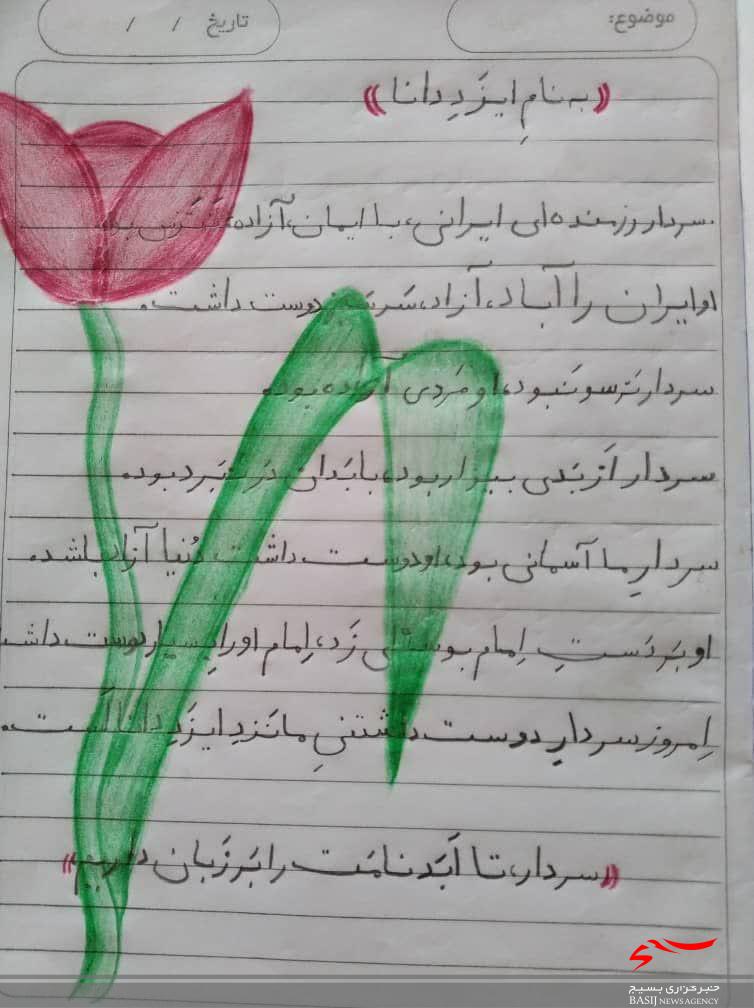 موضوع:
تاریخ / /
«به نامِ ایزَدِ دانا»
سردار رزمنده ای ایرانی، با ایمان، آزاده، نَتَرس بود.
او ایران را آباد، آزاد، سَرسَبز دوست داشت.
سردار تَرسو نَبود، او مَردی آزاده بود.
سردار اَز بَدی بیزار بود، با بَدان دَر نَبَرد بود.
سردارِ ما آسمانی بود، او دوست داشت دُنیا آزاد باشد.
او بَر دَستِ اِمام بوسه ای زَد، اِمام او را بِسیار دوست داشت
اِمروز سردارِ دوست داشتنیِ ما نَزدِ ایزَدِ دانا اَست.
«سردار، تا اَبَد نامَت را بَر زَبان داریم»
خبرگزاری بسیج
BASIJ NEWS AGENCY